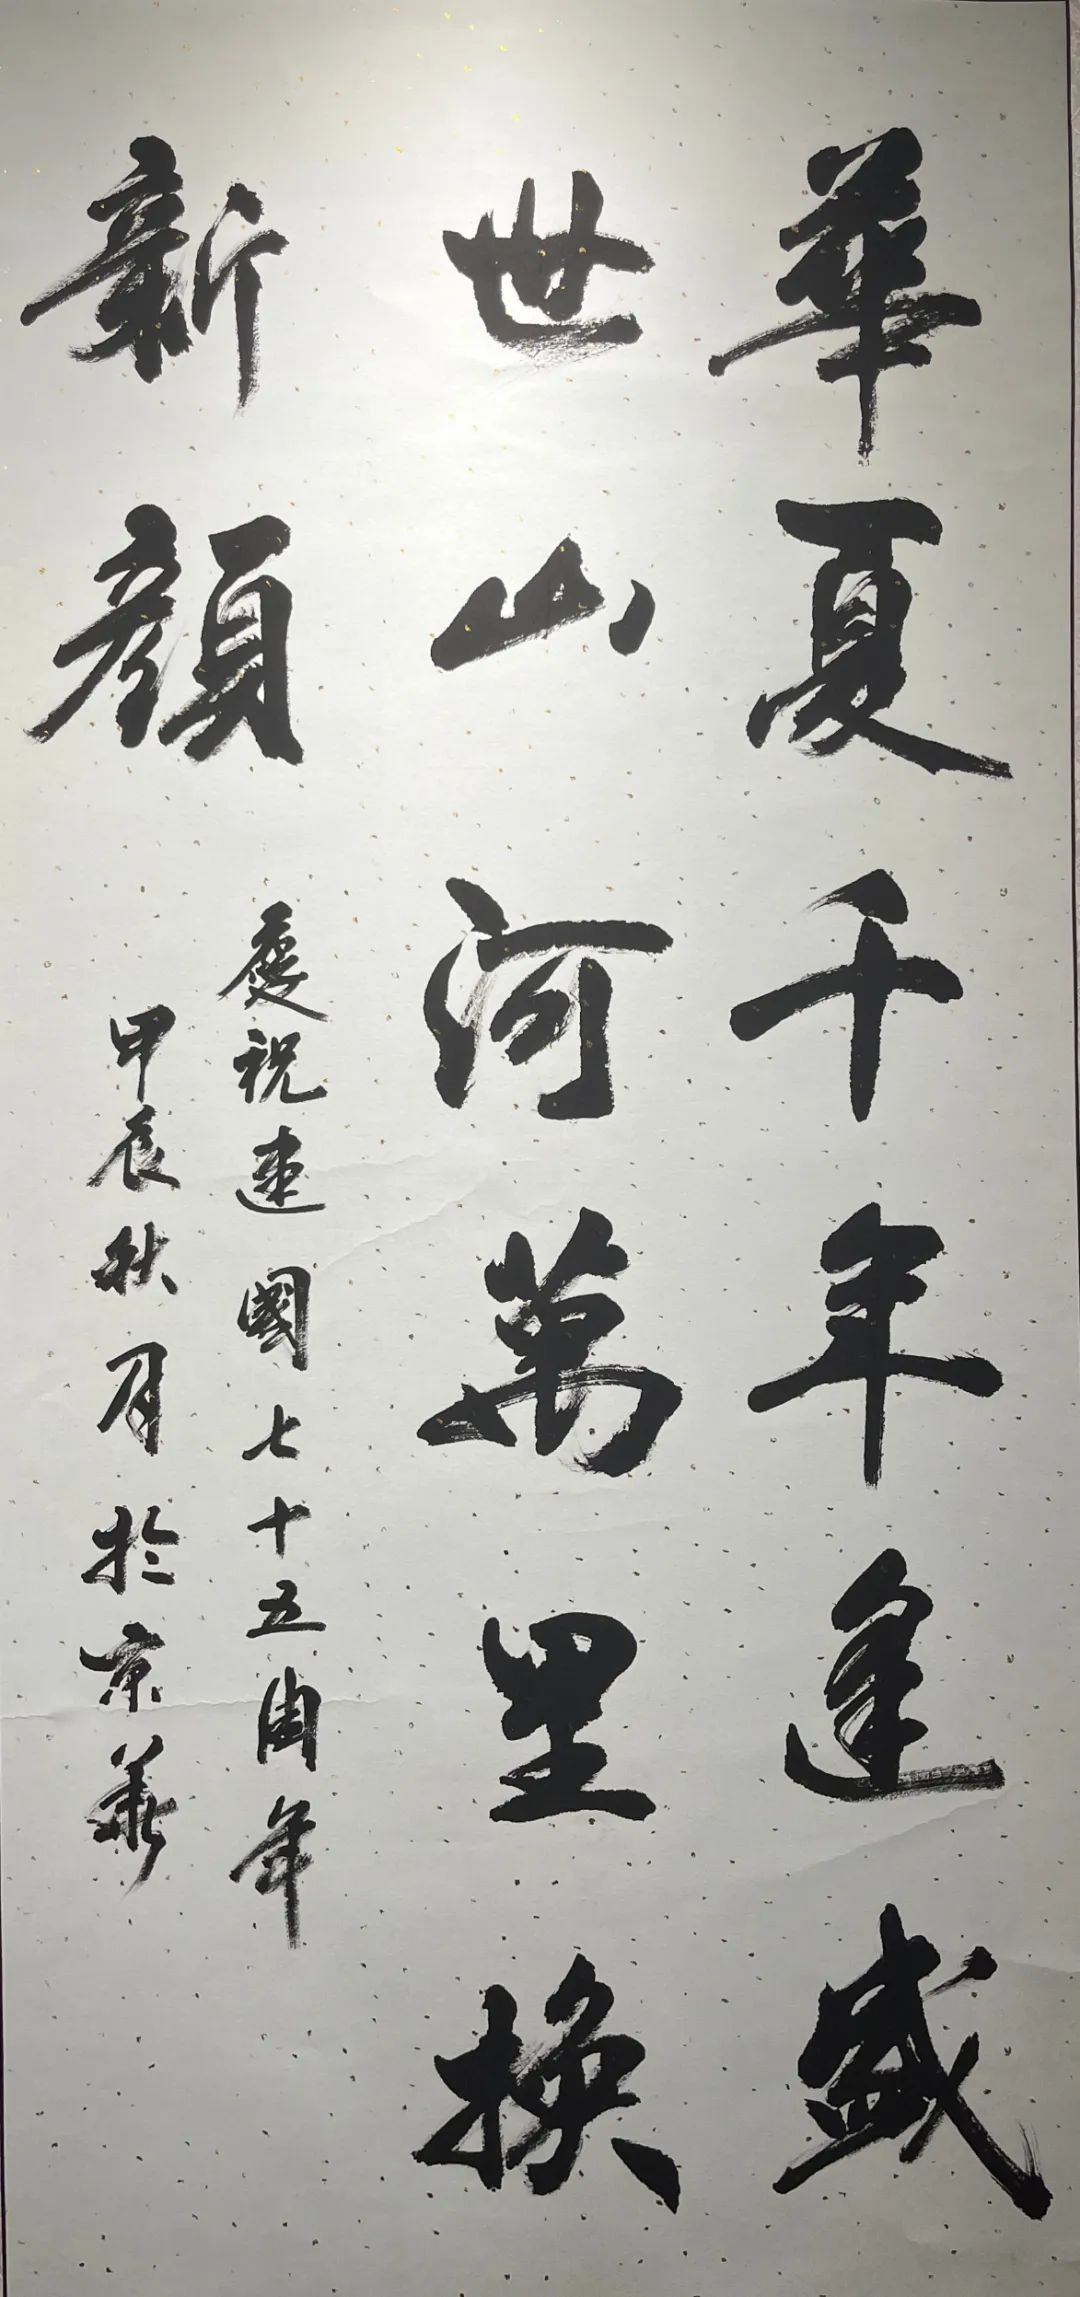 華夏千年逢盛
世山河萬里換
新顔
慶祝建國七十五周年
甲辰秋月於京華